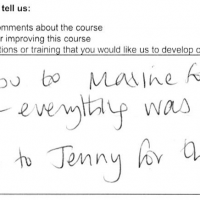 tell us:
omments about the course
r improving this course
tions or training that you would like us to develop
ou to Maxine fo
- everything was
to Jenny for